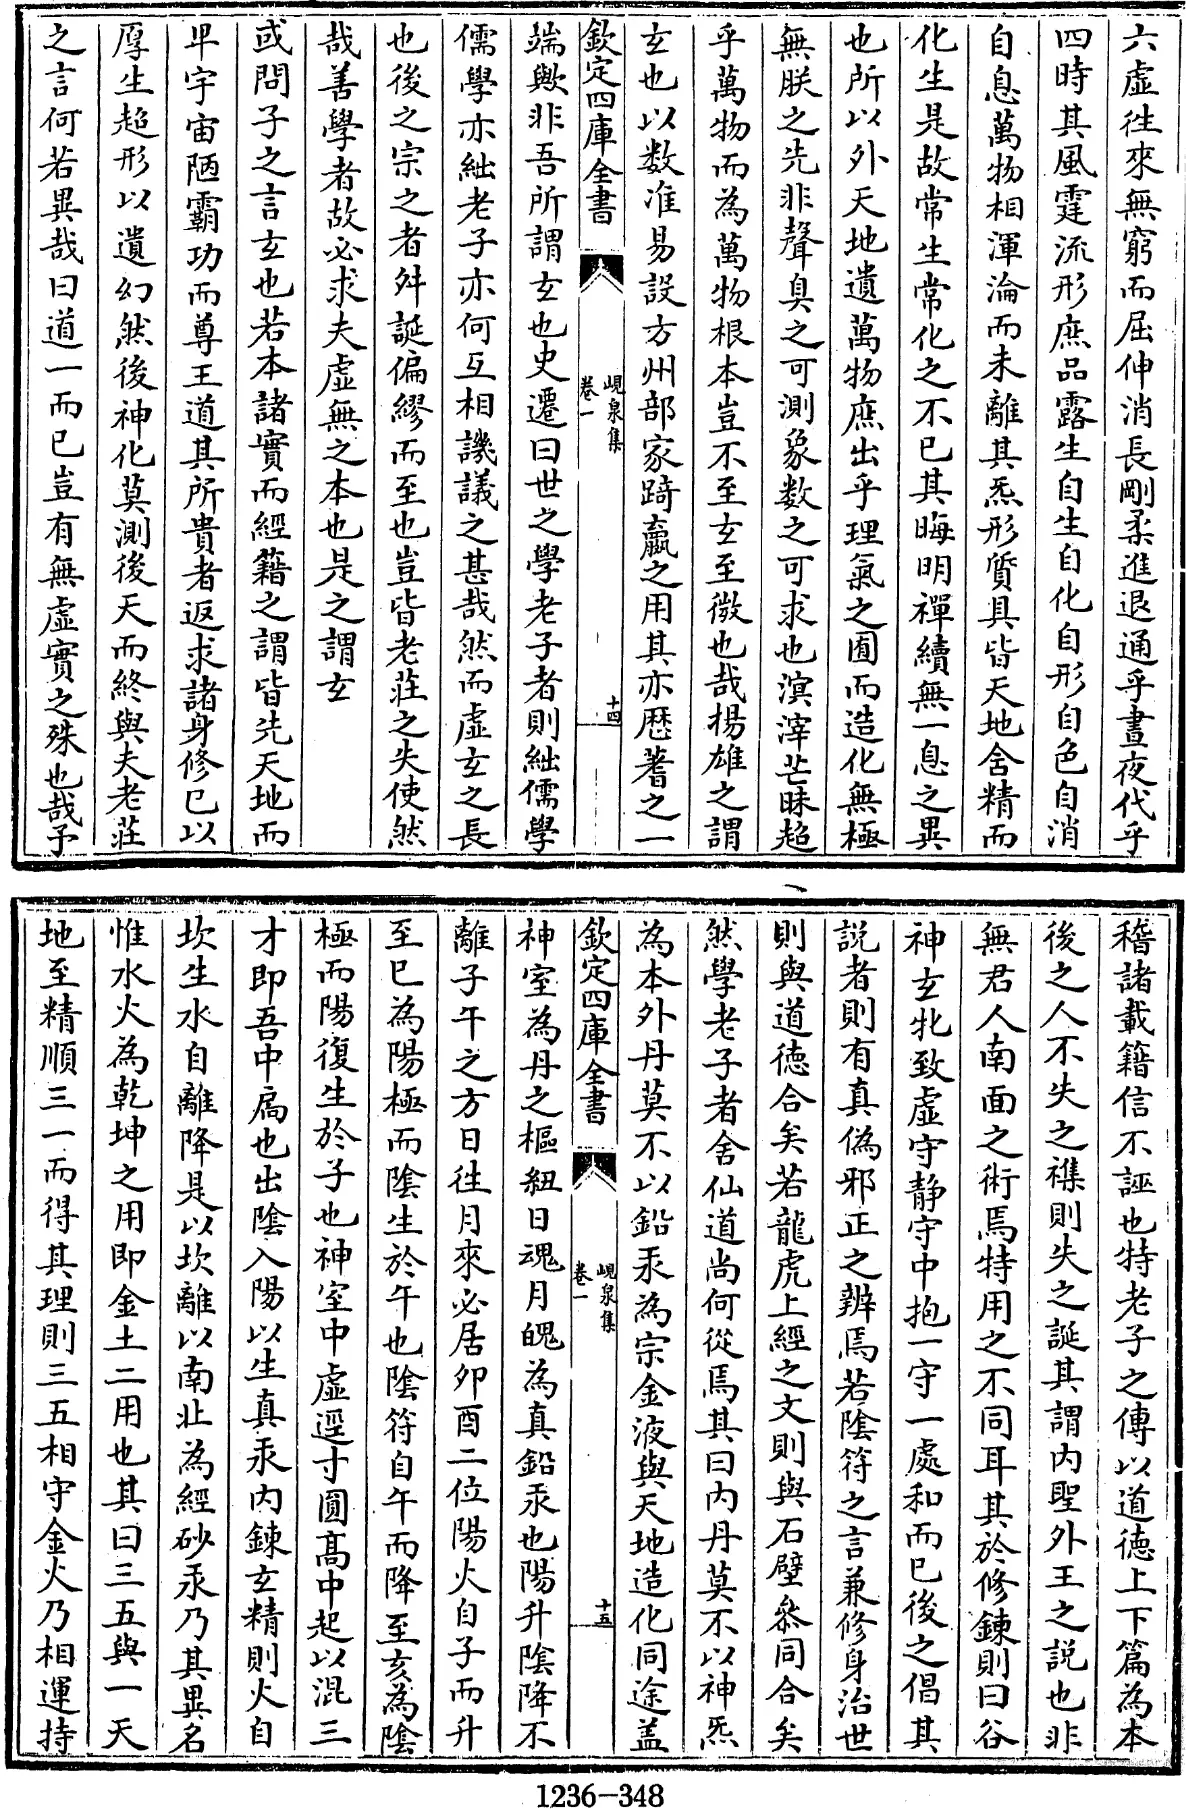 六虛徃來無窮而屈伸消長剛柔進退通乎晝夜代乎
四時其風霆流形庶品露生自生自化自形自色自消
自息萬物相渾淪而未離其炁形質具皆天地舍精而
化生是故常生常化之不已其晦明禪續無一息之異
也所以外天地遺萬物庶出乎理氣之囿而造化無極
無朕之先非聲臭之可測象數之可求也溟涬芒昧超
乎萬物而為萬物根本豈不至玄至微也哉揚雄之謂
玄也以數准易設方州部家踦嬴之用其亦厯蓍之一
欽定四庫全書
峴泉集
卷一
十四
端歟非吾所謂玄也史遷曰世之學老子者則絀儒學
儒學亦絀老子亦何互相譏議之甚哉然而虛玄之長
也後之宗之者舛誕偏繆而至也豈皆老莊之失使然
哉善學者故必求夫虛無之本也是之謂玄
或問子之言玄也若本諸實而經籍之謂皆先天地而
卑宇宙陋霸功而尊王道其所貴者返求諸身修已以
厚生超形以遺幻然後神化莫測後天而終與夫老莊
之言何若異哉曰道一而已豈有無虛實之殊也哉予
稽諸載籍信不誣也特老子之傳以道德上下篇為本
後之人不失之襍則失之誕其謂内聖外王之説也非
無君人南面之術焉特用之不同耳其於修鍊則曰谷
神玄牝致虛守静守中抱一守一處和而已後之倡其
説者則有真偽邪正之辨焉若陰符之言兼修身治世
則與道德合矣若龍虎上經之文則與石壁叅同合矣
然學老子者舍仙道尚何從焉其曰内丹莫不以神炁
為本外丹莫不以鉛汞為宗金液與天地造化同途盖
欽定四庫全書
峴泉集
卷一
十五
神室為丹之樞紐日魂月魄為真鉛汞也陽升陰降不
離子午之方日徃月來必居卯酉二位陽火自子而升
至巳為陽極而陰生於午也陰符自午而降至亥為陰
極而陽復生於子也神室中虛逕寸圓髙中起以混三
才即吾中扄也出陰入陽以生真汞内鍊玄精則火自
坎生水自離降是以坎離以南北為經砂汞乃其異名
惟水火為乾坤之用即金土二用也其曰三五與一天
地至精順三一而得其理則三五相守金火乃相運持
1236-348